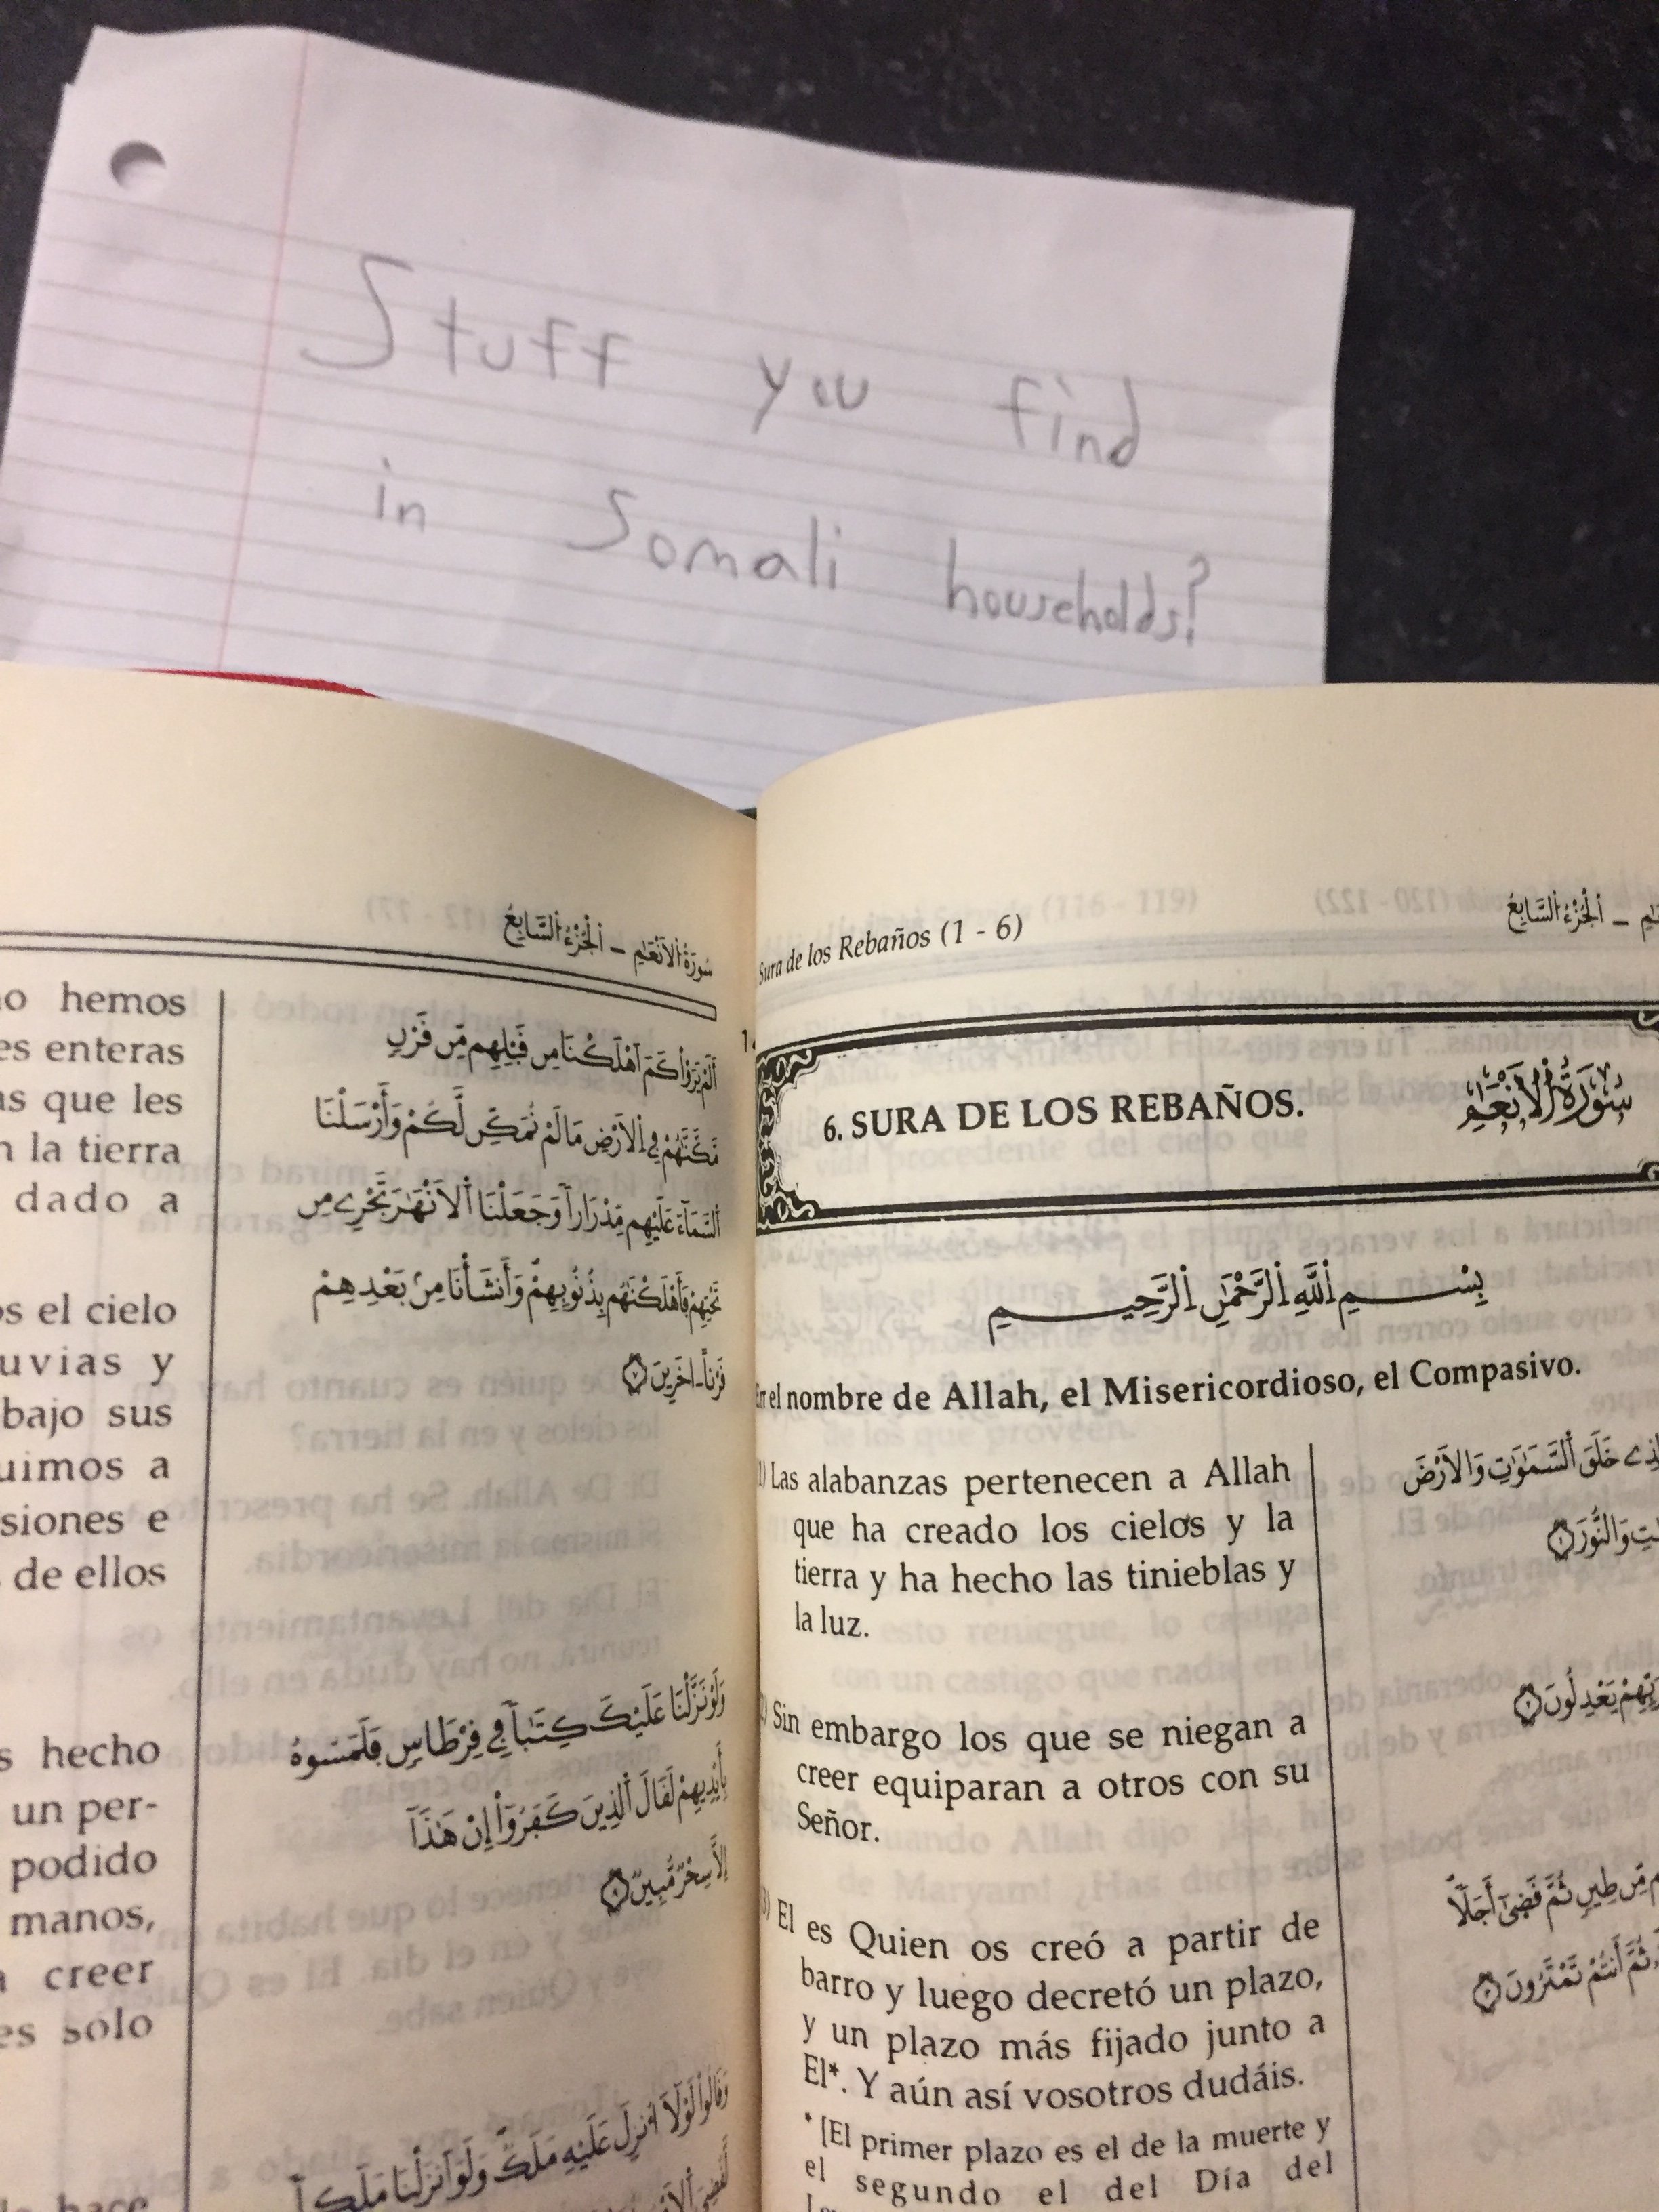 Stuff you find
in Somali households?
سُورَةُ الأَنْعَامِ – الجُزْءُ السَّابِعُ
hemos
es enteras
que les
la tierra
dado a
el cielo
uvias y
bajo sus
uimos a
siones e
de ellos
hecho
un per-
podido
manos,
creer
es solo
hace
أَلَمْ يَرَوْا كَمَ اَهْلَكْنَا مِن قَبْلِهِم مِّن قَرْنٍ
مَّكَّنَّٰهُمْ فِي اِلَارْضِ مَا لَمْ نُمَكِّن لَّكُمْ وَأَرْسَلْنَا
اَلسَّمَآءَ عَلَيْهِم مِّدْرَاراٗ وَجَعَلْنَا اَلَانْهَٰرَ تَجْرِے مِن
تَحْتِهِمْ فَأَهْلَكْنَٰهُم بِذُنُوبِهِمْ وَأَنشَأْنَا مِنۢ بَعْدِهِمْ
قَرْناً اٰخَرِينَ
وَلَوْ نَزَّلْنَا عَلَيْكَ كِتَٰباٗ فِي قِرْطَاسٖ فَلَمَسُوهُ
بِأَيْدِيهِمْ لَقَالَ اَلذِينَ كَفَرُوٓاْ إِنْ هَٰذَآ
إِلَّا سِحْرٌ مُّبِينٌ
وَقَالُواْ لَوْلَآ أُنزِلَ عَلَيْهِ مَلَكٌ وَلَوَ اَنزَلْنَا مَلَكاٗ
Sura de los Rebaños (1 - 6)
الجُزْءُ السَّابِعُ
6. SURA DE LOS REBAÑOS.
سُورَةُ الأَنْعَامِ
بِسْمِ اِللَّهِ اِلرَّحْمَٰنِ اِلرَّحِيمِ
En el nombre de Allah, el Misericordioso, el Compasivo.
(1) Las alabanzas pertenecen a Allah
que ha creado los cielos y la
tierra y ha hecho las tinieblas y
la luz.
(2) Sin embargo los que se niegan a
creer equiparan a otros con su
Señor.
(3) El es Quien os creó a partir de
barro y luego decretó un plazo,
y un plazo más fijado junto a
El*. Y aún así vosotros dudáis.
* [El primer plazo es el de la muerte y
el segundo el del Día del
خَلَقَ اَلسَّمَٰوَٰتِ وَالَارْضَ
وَالنُّورَ
يَعْدِلُونَ
مِّن طِينٖ ثُمَّ قَضَىٰٓ أَجَلاٗ
ثُمَّ أَنتُمْ تَمْتَرُونَ